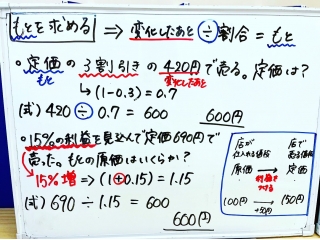 もとを求める ⇒ 変化したあと ÷ 割合 = もと
・定価の3割引きの420円で売る。定価は？
もと 変化したあと
↳(1-0.3)=0.7
(式) 420 ÷ 0.7 = 600 600円
・15%の利益を見込んで定価690円で
売った。もとの原価はいくらか？
15%増 ⇒ (1+0.15) = 1.15
(式) 690 ÷ 1.15 = 600
600円
店が 店で
仕入れる価格 売る価格
原価 → 定価
利益を
つける
100円 → 150円
+50円